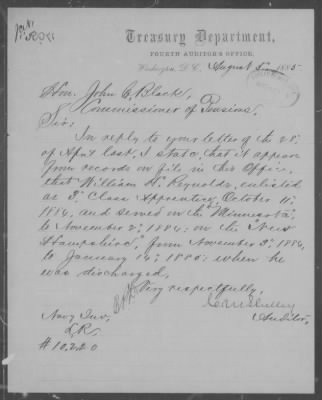 Treasury Department,
FOURTH AUDITOR'S OFFICE,
Washington, D.C., August 1885
Hon. John C. Black,
Commissioner of Pensions,
Sir:
In reply to your letter of the 28"
of April last, I state, that it appears
from records on file in this Office,
that William H. Reynolds, enlisted
as 3" Class Apprentice, October 11"
1884, and served on the "Minnesota"
to November 2" 1884; on the "New
Hampshire," from November 3" 1884,
to January 14" 1885; when he
was discharged,
Very respectfully,
Auditor.
Navy Inv.
# 10,220